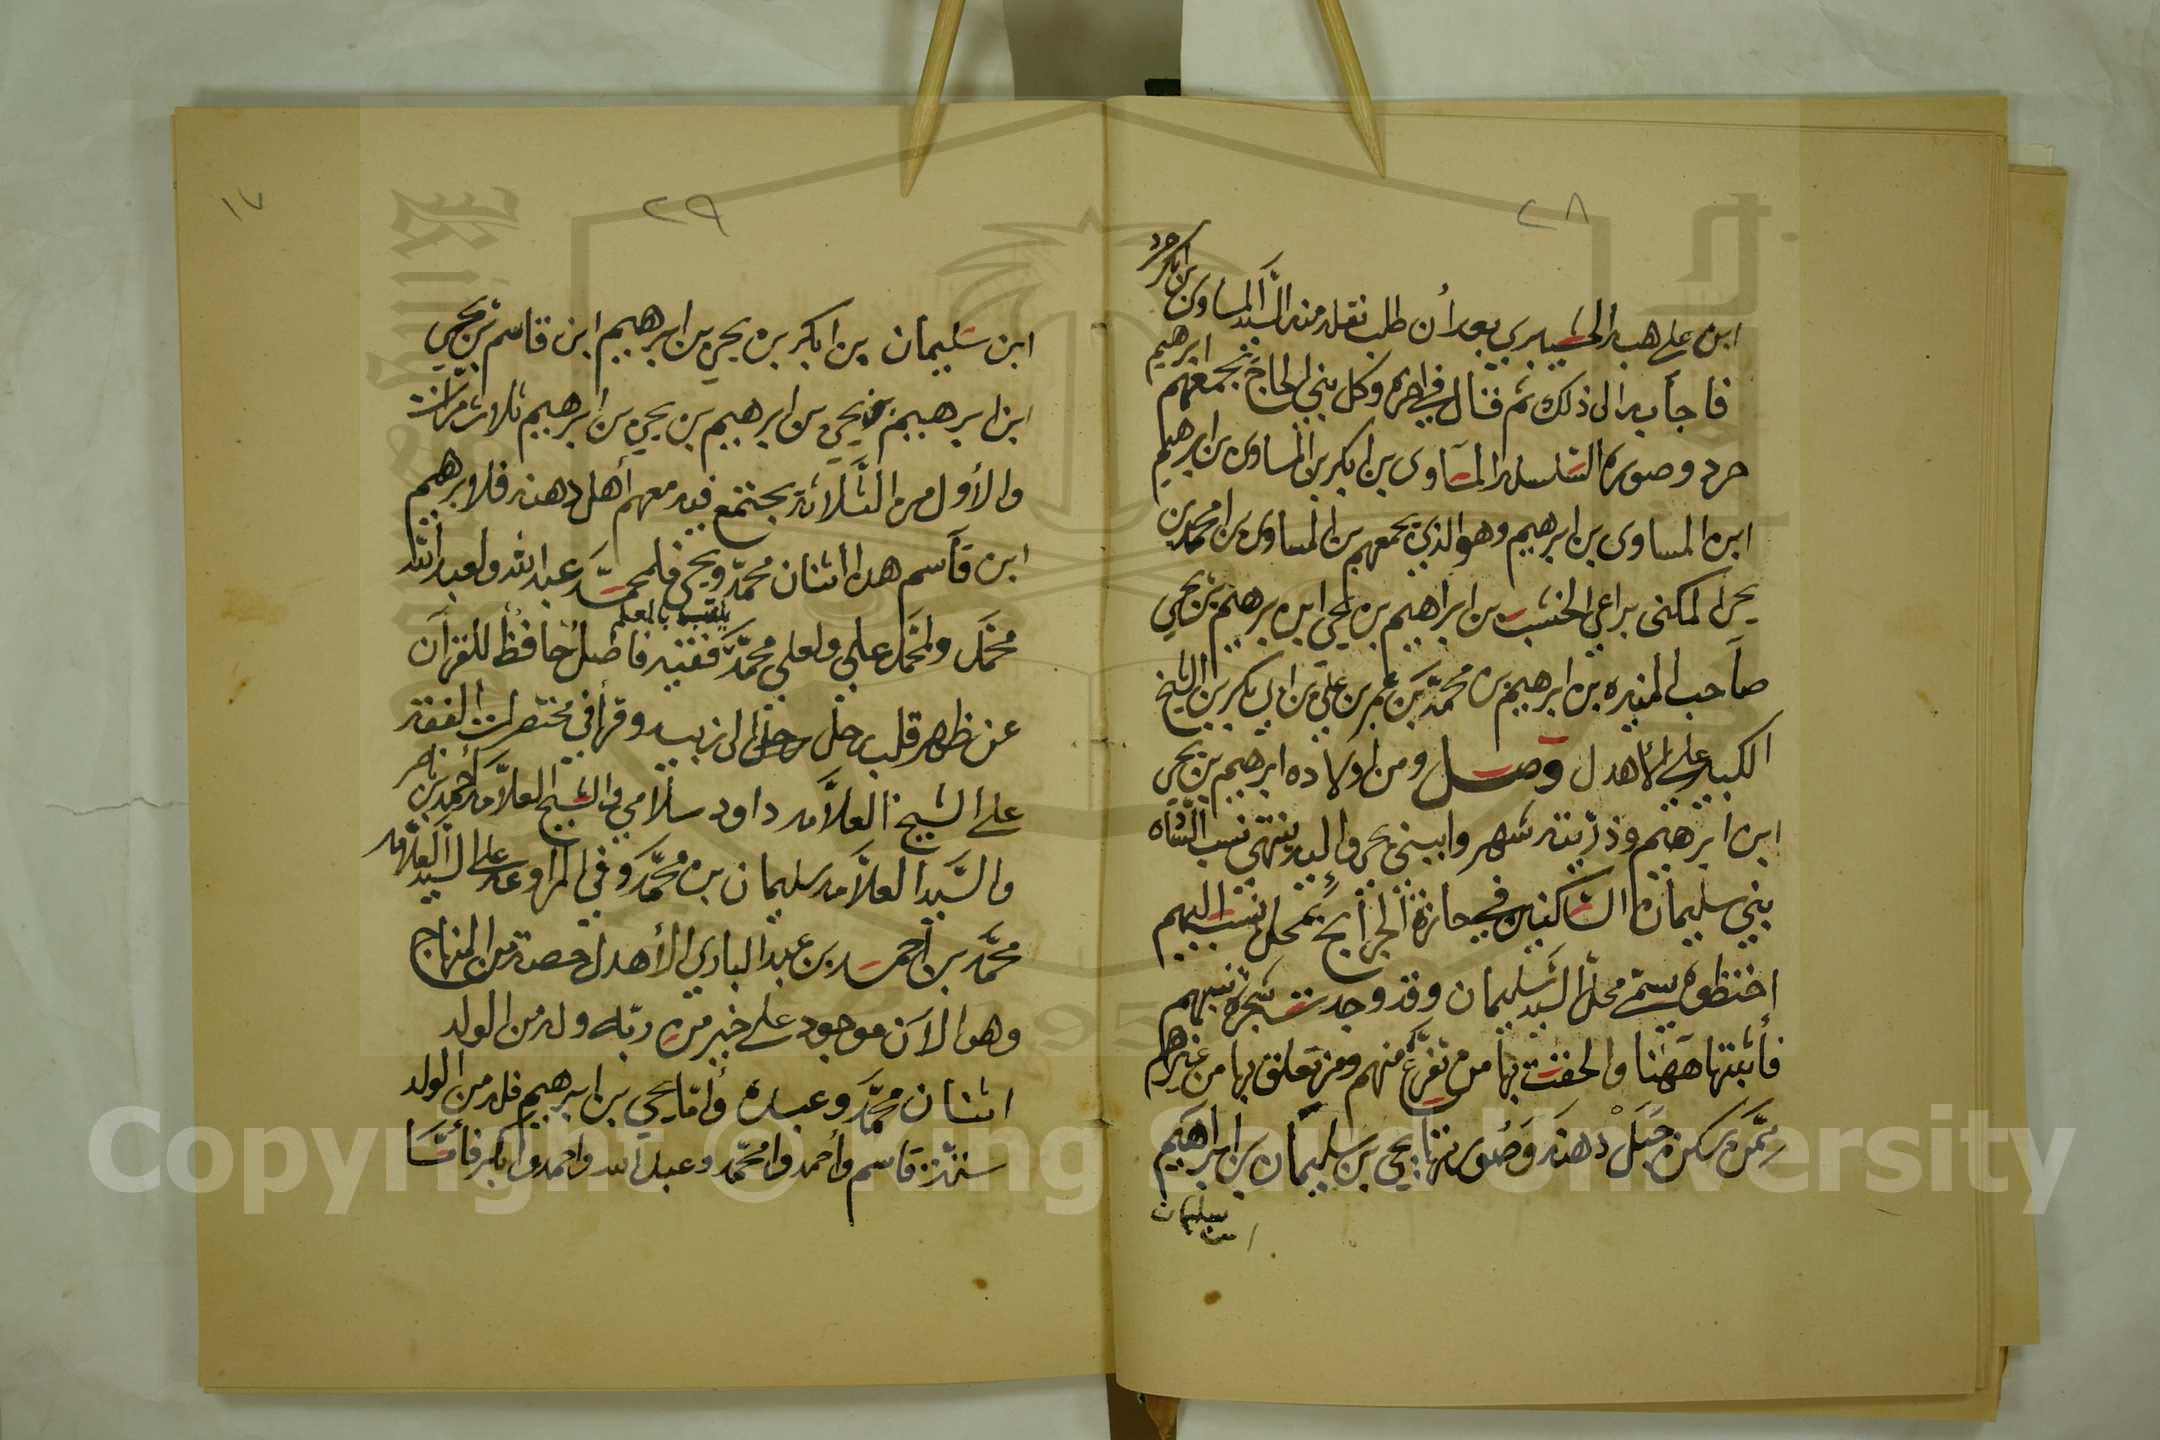 ٢٨
ابن علي هبه الحشيبري بعد أن طلب نقله منه السيد المساوى بن ابكر حرد
فاجابه الى ذلك ثم قال في اخره وكل بني الحاج يجمعهم ابرهيم
حرد وصورة السلسله المساوى بن ابكر بن المساوى بن ابرهيم
ابن المساوى بن ابرهيم وهو الذي يجمعهم بن المساوى بن محمد بن
يحيى المكنى براعي الخشب بن ابراهيم بن يحيى ابن ابرهيم بن يحيى
صاحب المنيره بن ابرهيم بن محمد بن عمر بن علي بن ابي بكر بن الشيخ
الكبير علي الأهدل وصل ومن اولاده ابرهيم بن يحيى
ابن ابرهيم وذريته شهر وابيني يحيى واليه ينتهي نسب السادة
بني سليمان الساكنين في حازة الجرابح بمحل نسب اليهم
اختطوه يسمى محل السيد سليمان وقد وجدت شجرة نسبهم
فأثبتها ههنا والحقت بها من تفرع منهم ومن تعلق بها من غيرهم
ممن سكن جبل دهنه وصورتها يحيى بن سليمان بن ابراهيم
بن سليمان
٢٩
١٧
ابن سليمان بن ابكر بن يحيى بن ابرهيم ابن قاسم بن يحيى
ابن ابرهيم بن يحيى بن ابرهيم بن يحيى بن ابرهيم ثلاث مرات
والأول من الثلاثة يجتمع فيه معهم أهل دهنه فلابرهيم
ابن قاسم هذا اثنان محمد ويحيى فلمحمد عبد الله ولعبد الله
محمد ولمحمد علي ولعلي محمد فقيه فاضل حافظ للقرآن
يلقب بالمعلم
عن ظهر قلب رحل رحل الى زبيد وقرأ في مختصرات الفقه
على الشيخ العلامه داود سلامي والشيخ العلامه أحمد بن ناصر
والسيد العلامه سليمان بن محمد وفي المراوعه على السيد العلامه
محمد بن أحمد بن عبد الباري الأهدل حصة من المنهاج
وهو الآن موجود على خير من ربه وله من الولد
اثنان محمد وعبده وأما يحيى بن ابرهيم فله من الولد
ستة قاسم وأحمد ومحمد وعبد الله واحمد وابكر فأما
Copyright © King Saud University